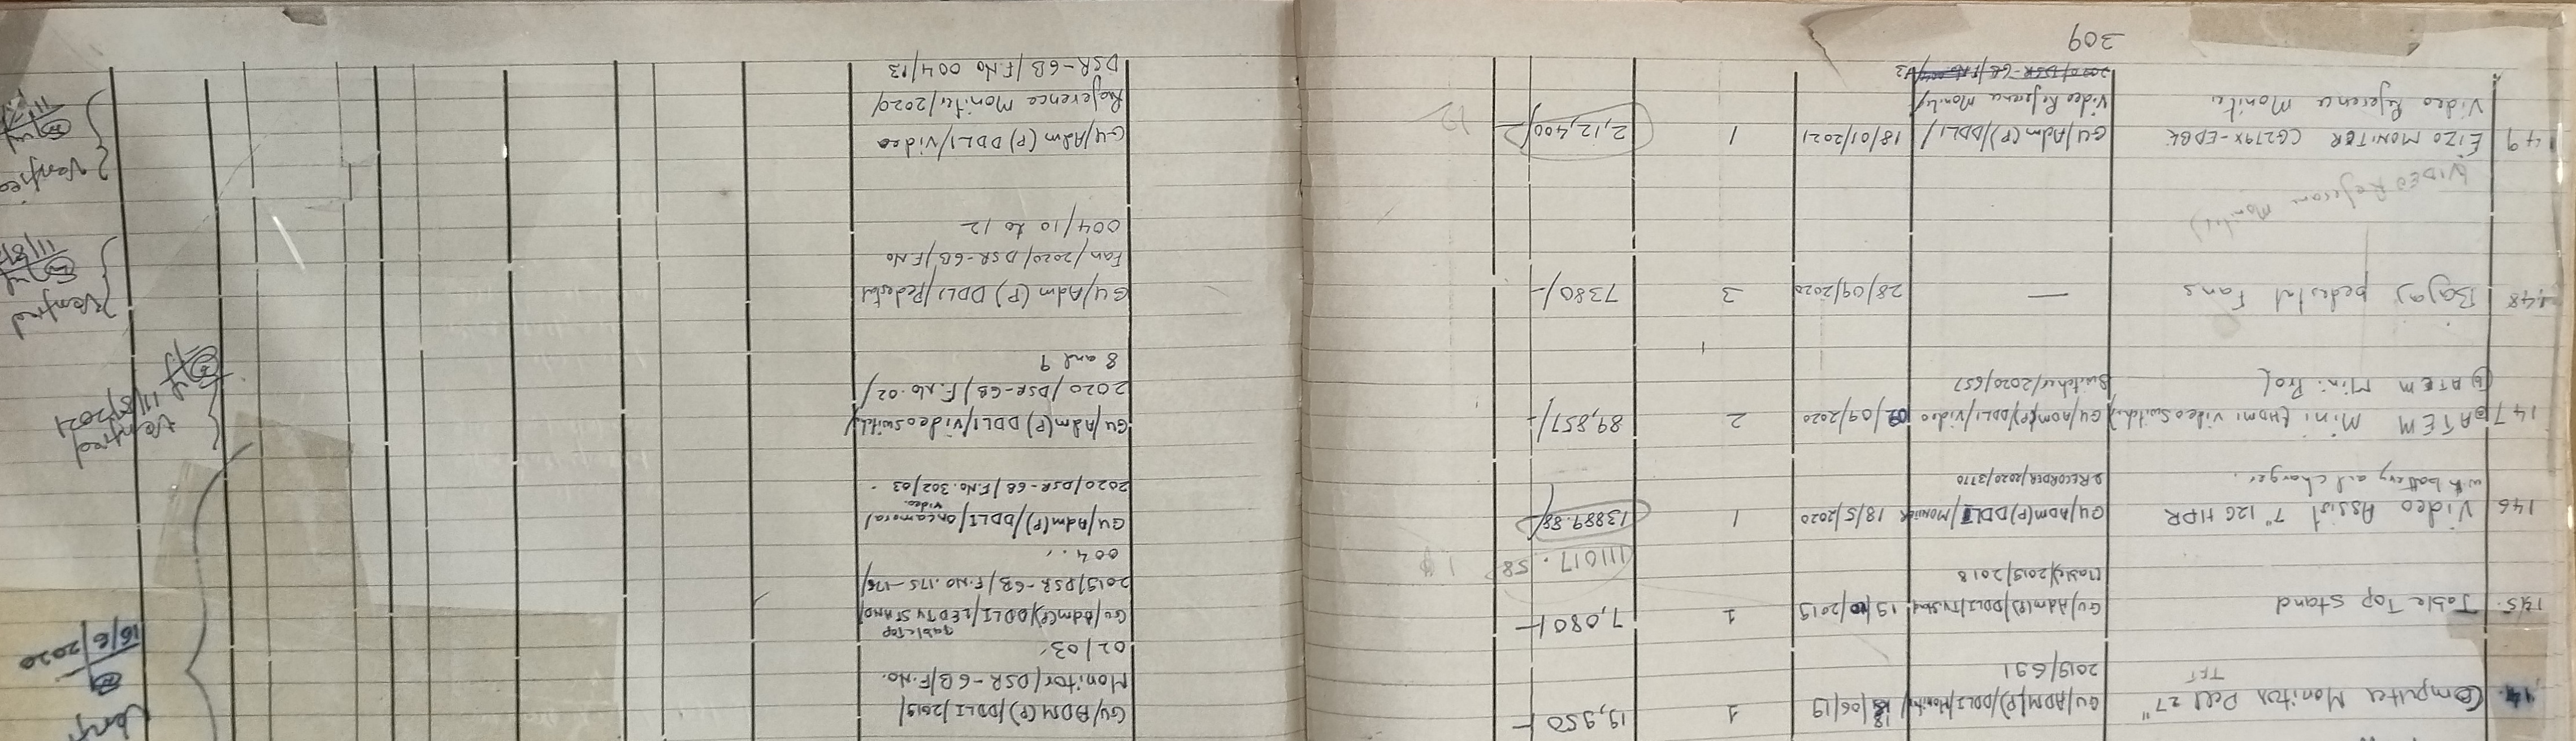 144. Computer Monitor Dell 27"
TFT
GU/ADM(P)/DDLI/Monitor/
2019/691
18/06/19
1
19,950/-
145. Table Top stand
GU/Adm(P)/DDLI/TV.Stand
2019/2018
19/10/2019
1
7,080/-
111017.58
146 Video Assist 7" 12G HDR
with battery and charger.
GU/ADM(P)/DDLI/MONITOR
& RECORDER/2020/3770
18/5/2020
1
13889.88
147 @ ATEM Mini (HDMI Video Switcher)
(b) ATEM Mini Pro(
GU/ADM(P)/DDLI/Video
Switcher/2020/657
02/09/2020
2
89,857/-
148 Bajaj pedestal Fans
—
28/09/2020
3
7380/-
VIDEO Referance Monitor)
149 EIZO MONITOR CG279X-EDBK
Video Reference Monitor
GU/Adm(P)/DDLI/
Video Reference Monitor/
2020/DSR-6B/F.No
18/01/2021
1
2,12,400/-
309
GU/ADM(P)/DDLI/2019/
Monitor/DSR-6B/F.No.
02/03
GU/Adm(P)/DDLI/LEDTV STAND/
Table Top
2019/DSR-6B/F.NO.175-176/
004.
GU/Adm(P)/DDLI/oncamera/
Video
2020/DSR-6B/F.No.302/03
GU/Adm(P)DDLI/Videoswitch/
2020/DSR-6B/F.No.02/
8 and 9
GU/Adm(P)DDLI/Pedestal
Fan/2020/DSR-6B/F.No
004/10 to 12
GU/Adm(P)DDLI/Video
Reference Monitor/2020/
DSR-6B/F.No 004/13
16/6/2020
Verified
11/8/2021
Verified
Verified